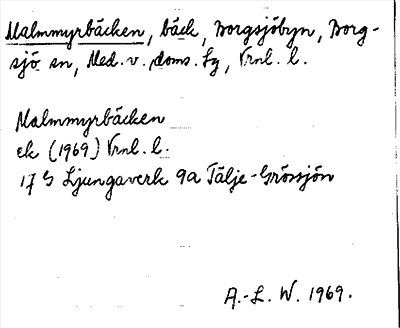 Malmmyrbäcken, bäck, Borgsjöbyn, Borg-
sjö sn, Med. v. doms. tg, Vrnl. l.
Malmmyrbäcken
ek (1969) Vrnl. l.
17 G Ljungaverk 9a Tälje-Grössjön
A.-L. W. 1969.